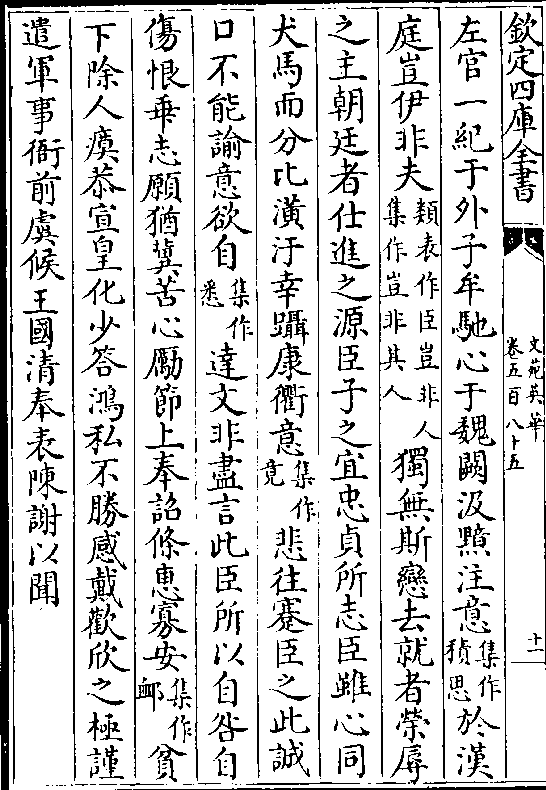 欽定四庫全書
文苑英華
卷五百八十五
十一
左官一紀于外子牟馳心于魏闕汲黯注意集作積思於漢
庭豈伊非夫類表作臣豈非人集作豈非其人獨無斯戀去就者榮辱
之主朝廷者仕進之源臣子之宜忠貞所志臣雖心同
犬馬而分比潢汙幸躡康衢意集作竟悲往蹇臣之此誠
口不能諭意欲自集作悉達文非盡言此臣所以自咎自
傷恨垂志願猶冀苦心勵節上奉詔條惠寡安集作䘏貧
下除人瘼恭宣皇化少答鴻私不勝感戴歡欣之極謹
遣軍事衙前虞候王國清奉表陳謝以聞